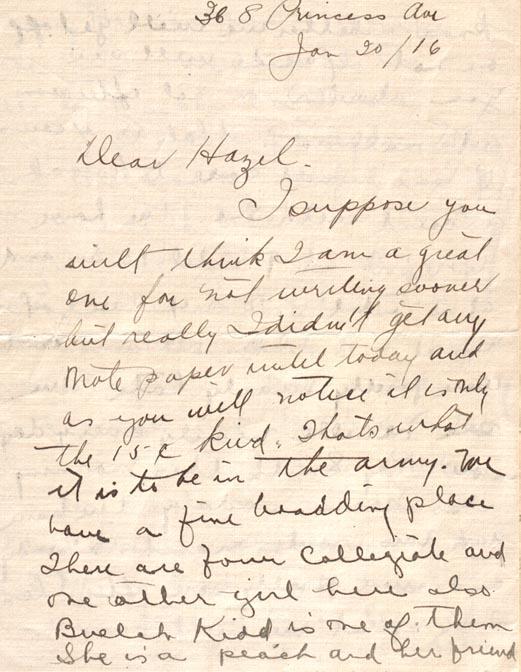 368 Princess Ave
Jan 20/16
Dear Hazel.
I suppose you
will think I am a great
one for not writing sooner
but really I didn't get any
note paper until today and
as you will notice it is only
the 15¢ kind. Thats what
it is to be in the army. We
have a fine boadding place
There are four Collegiate and
one other girl here also
Buelah Kidd is one of them
She is a peach and her friend